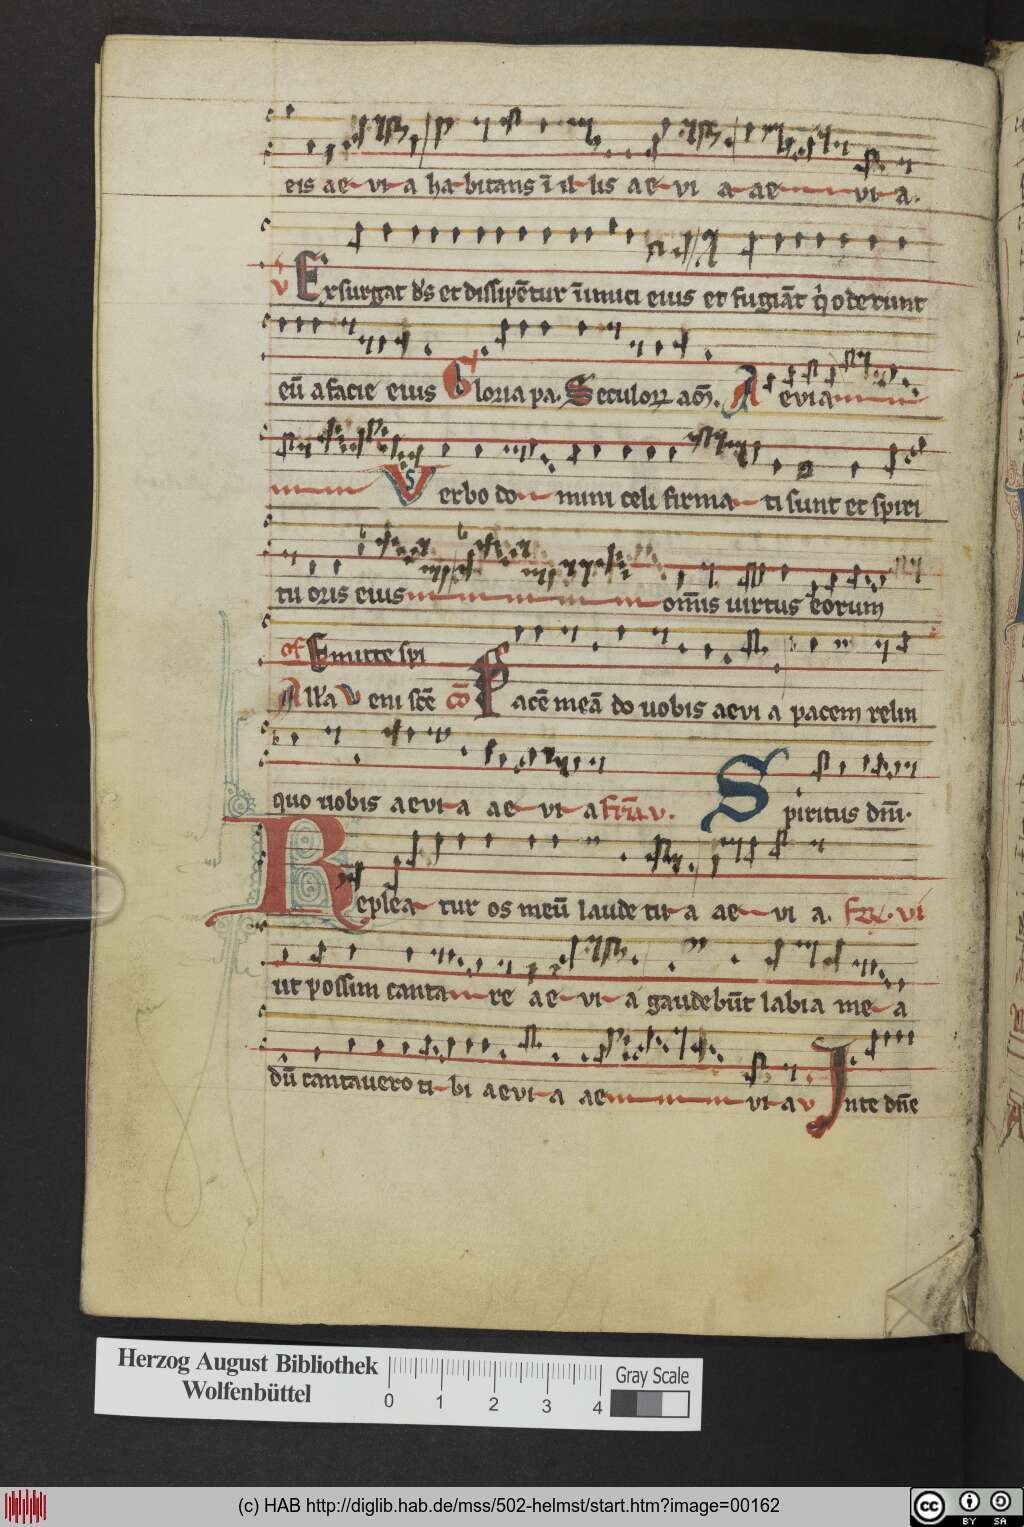 eis ae vi a habitans ī il lis ae vi a ae vi a.
v Exsurgat ds̄ et dissipētur inimici eius et fugiāt q̇ oderunt
eū a facie eius Gloria pa. Seculoꝝ am̄. A evia
Verbo domini celi firmati sunt et spiri
tu oris eius om̄is uirtus eorum
of Emitte spi
All'a v Veni scē cō Pacē meā do uobis aevia pacem relin
quo uobis aevia aevia fr̄ia v. Spiritus dn̄i.
Repleatur os meū laude tua aevia. fr̄. vi
ut possim cantare aevia gaudebūt labia mea
dū cantauero tibi aevia aevia v In te dn̄e
Herzog August Bibliothek
Wolfenbüttel
0 1 2 3 4
Gray Scale
(c) HAB http://diglib.hab.de/mss/502-helmst/start.htm?image=00162
cc BY SA